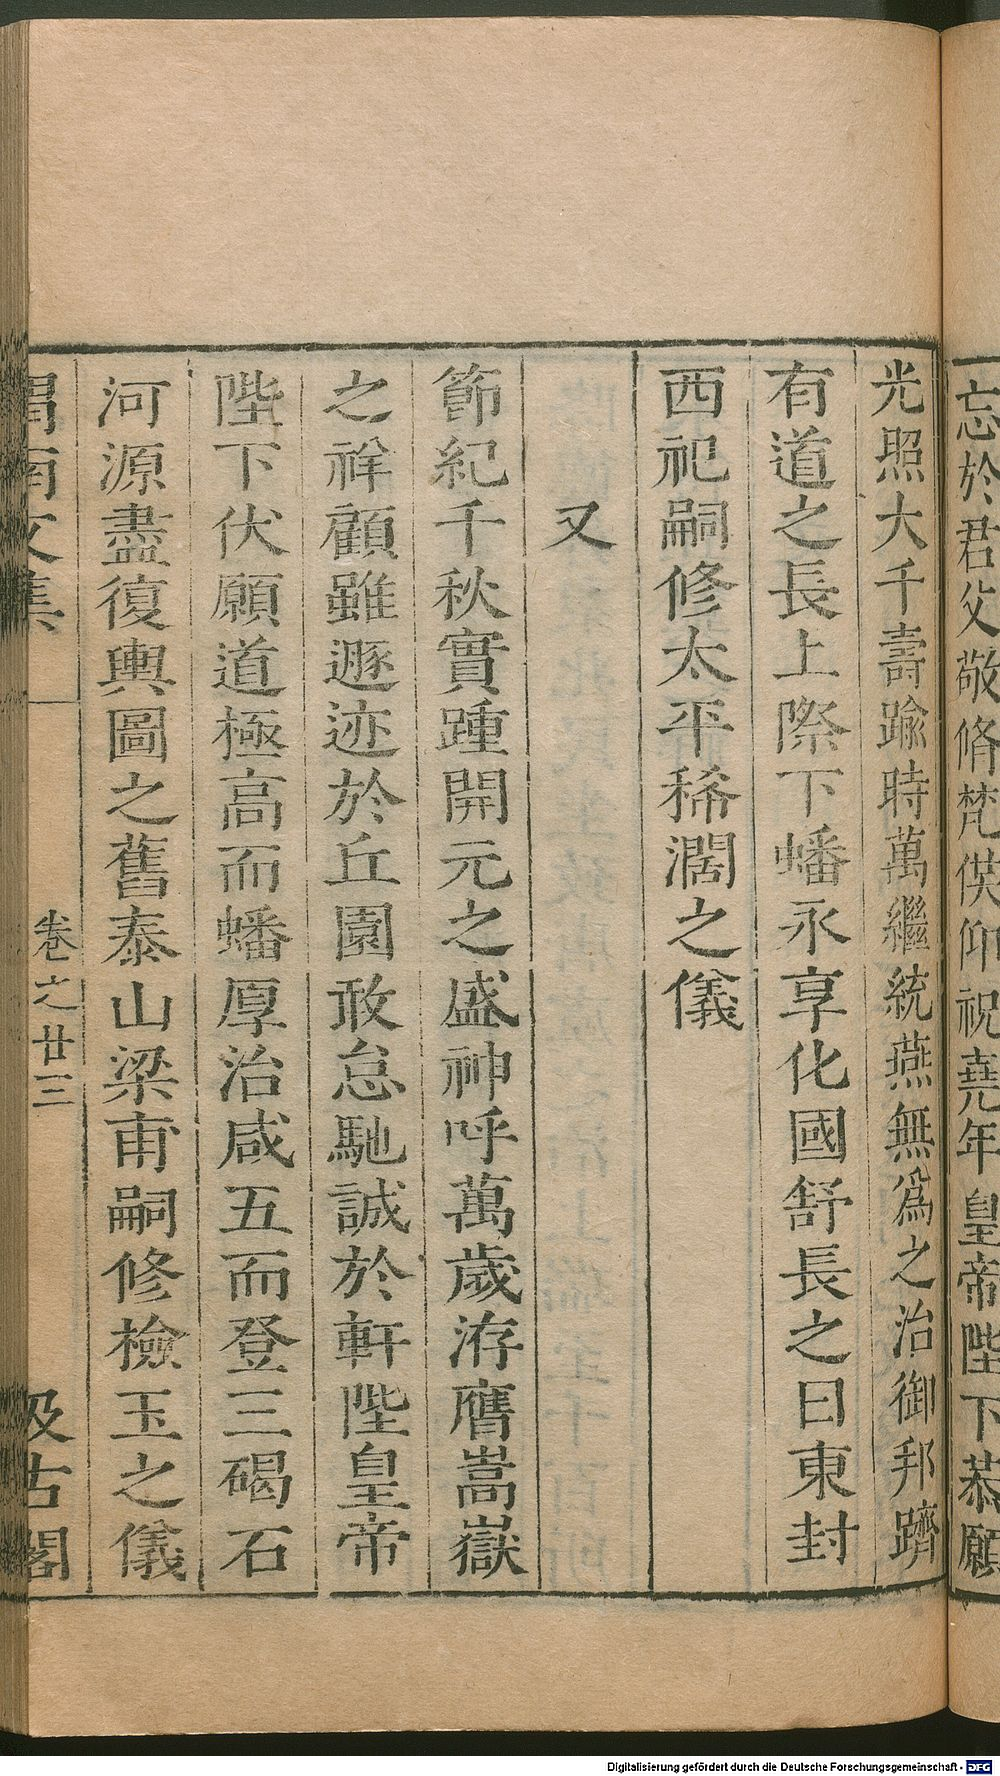 忘於君父敬脩梵供仰祝堯年皇帝陛下恭願
光照大千壽踰時萬繼統燕無爲之治御邦躋
有道之長上際下蟠永享化國舒長之日東封
西祀嗣修太平稀濶之儀
又
節紀千秋實踵開元之盛神呼萬歲洊膺嵩嶽
之祥顧雖遯迹於丘園敢怠馳誠於軒陛皇帝
陛下伏願道極高而蟠厚治咸五而登三碣石
河源盡復輿圖之舊泰山梁甫嗣修檢玉之儀
渭南文集 卷之廿三 汲古閣
Digitalisierung gefördert durch die Deutsche Forschungsgemeinschaft - DFG